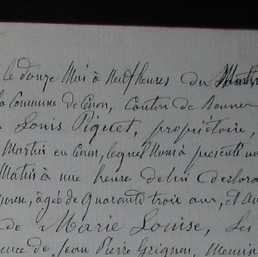 le douze Mai à Neuf heures du Matin
la Commune de Cinon, Canton de Bonne
Louis Piquet, propriétoire,
Martin en Cinon, lequel Nous à présenté un
Matin à une heure de lui déclara
âgée de quarante trois aux, et du
de Marie Louise, Les
ence de Jean Pierre Grignon, Menuisi